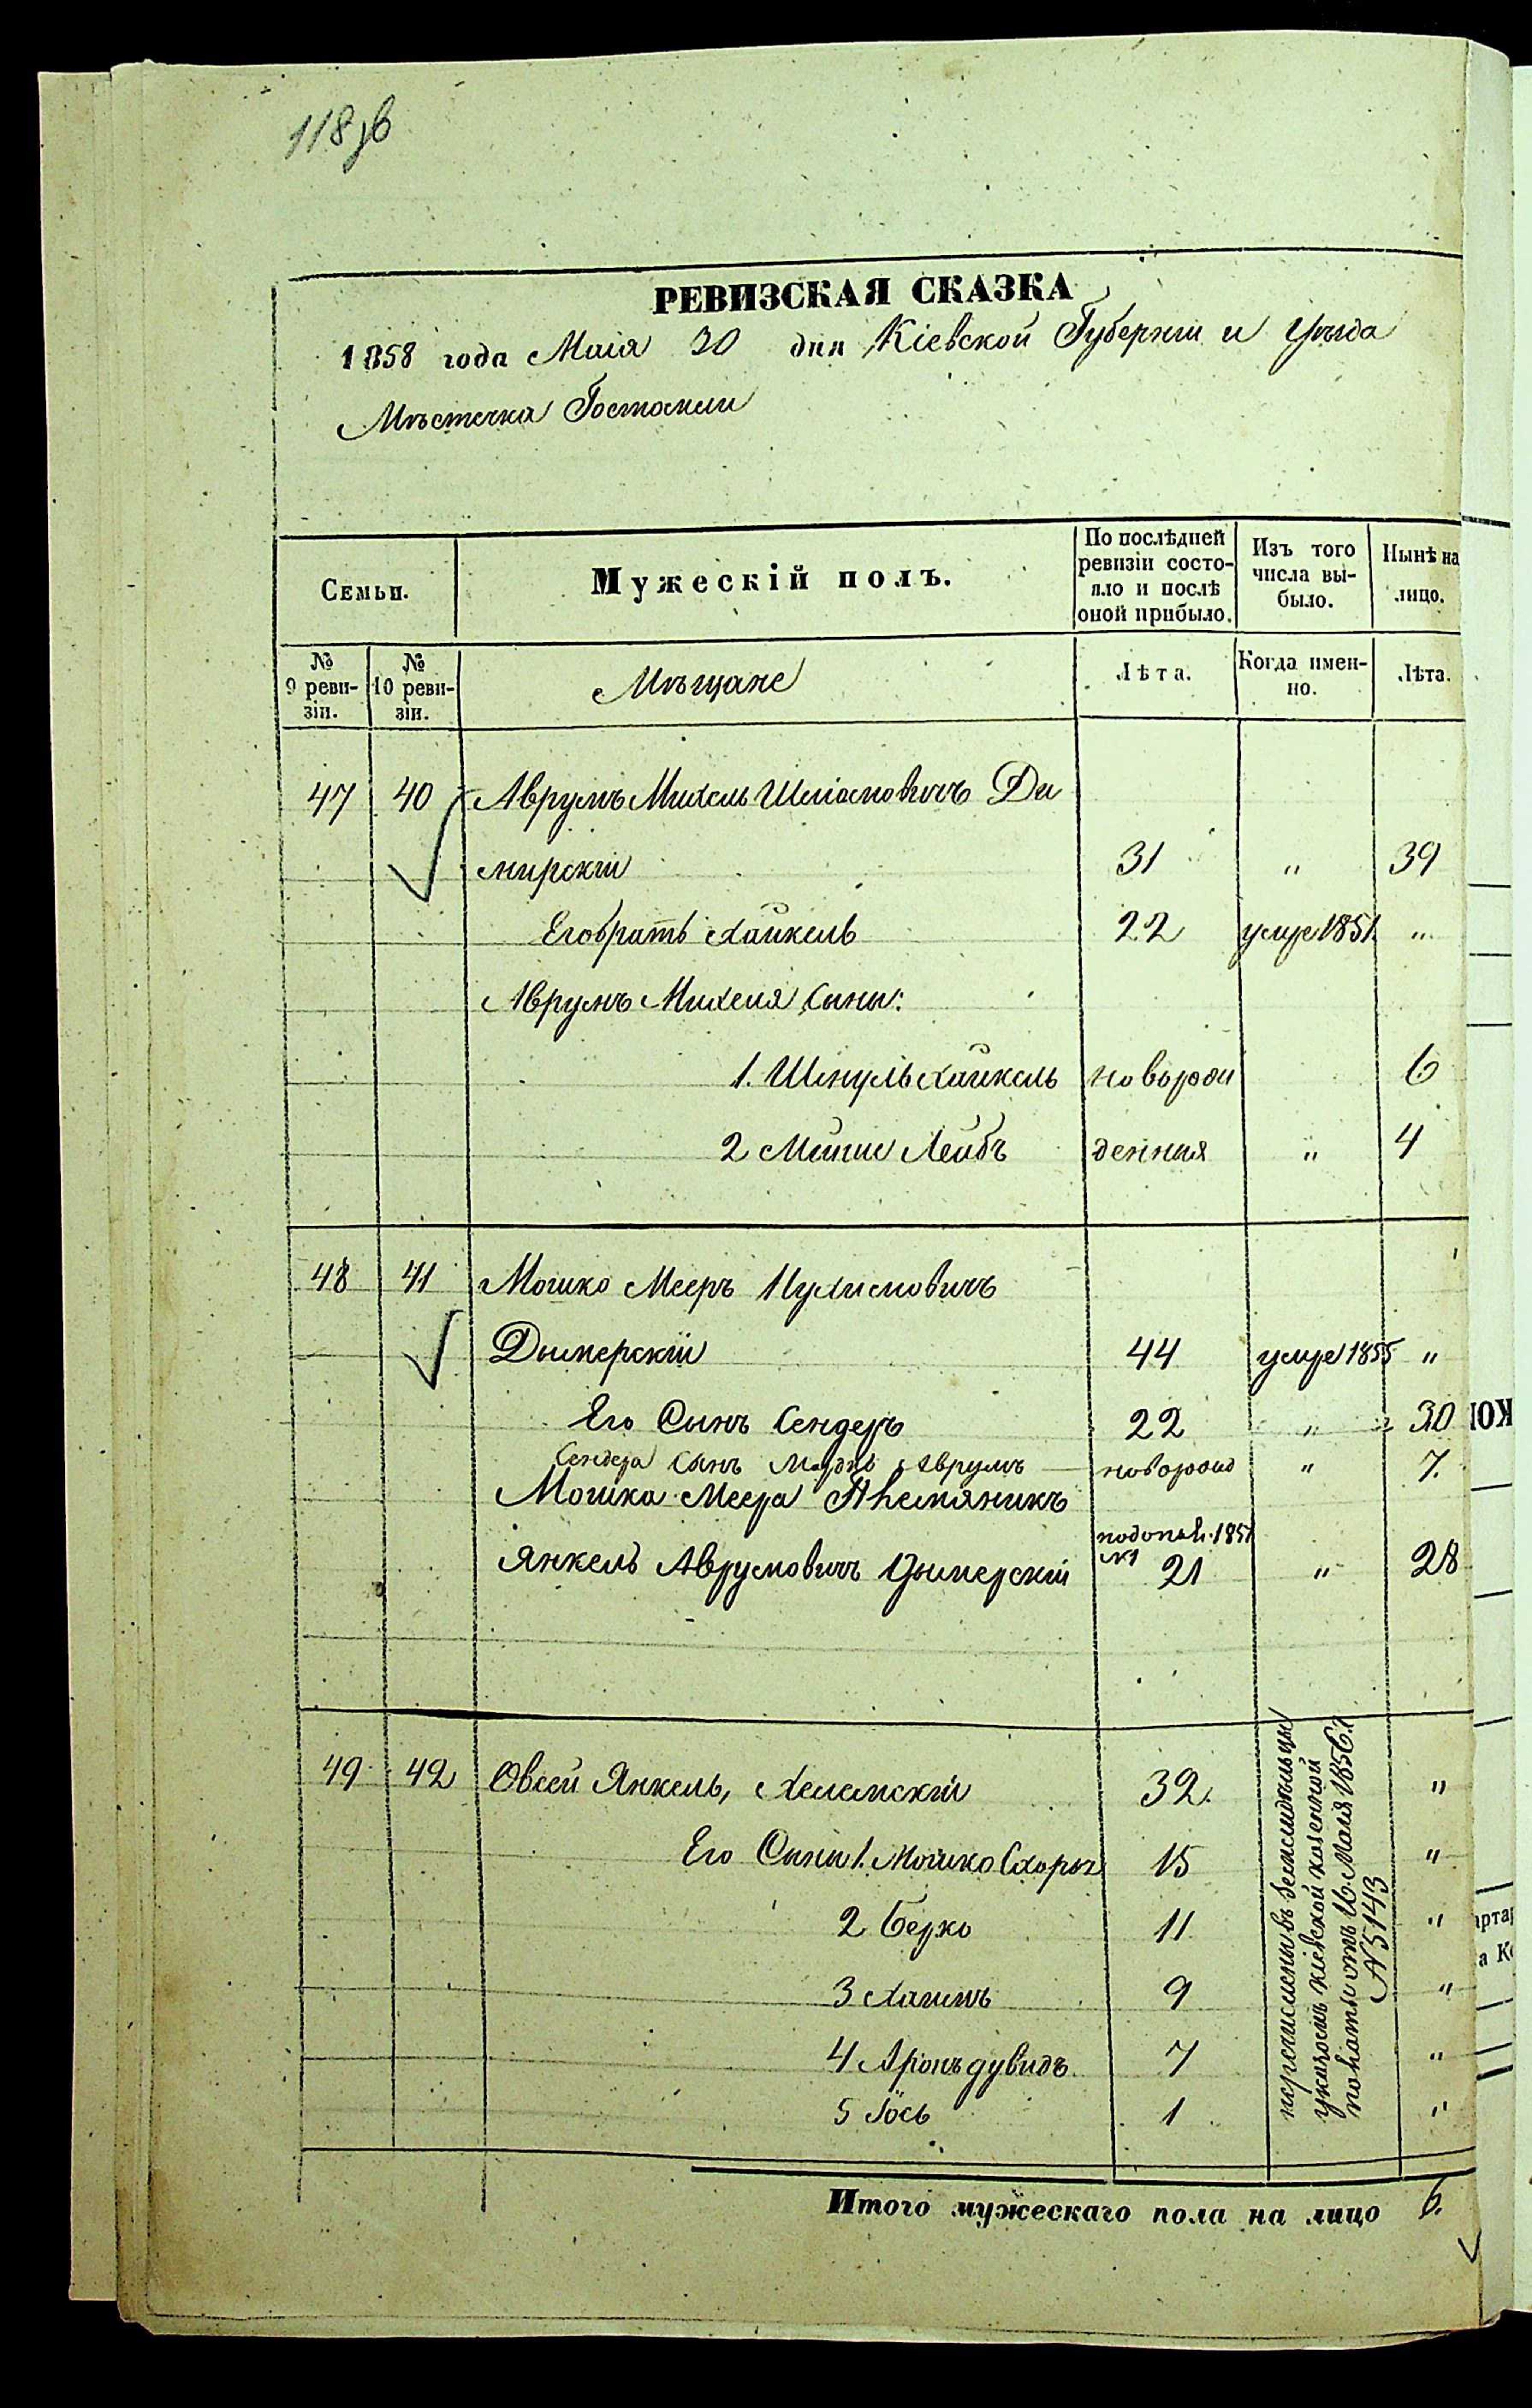 118 об
РЕВИЗСКАЯ СКАЗКА
1858 года Маія 30 дня Кіевской Губерніи и Уѣзда
Мѣстечка Гостомли
Семьи.
Мужескій полъ.
По послѣдней ревизіи состояло и послѣ оной прибыло.
Изъ того числа выбыло.
Нынѣ на лицо.
№ 9 ревизіи.
№ 10 ревизіи.
Мѣщане
Лѣта.
Когда именно.
Лѣта.
47 40 Аврумъ Михель Шліомовичъ Ди
мирскій 31 " 39
Его братъ Хайкель 22 умре 1851 "
Аврумъ Михеля Сыны:
1. Шмуль Хайкель новорож 6
2 Лейбъ денныя " 4
48 41 Мошко Мееръ Нухимовичъ
Дымерскій 44 умре 1855 "
Его Сынъ Сендеръ 22 " 30
Сендера Сынъ Аврумъ новорожд " 7.
Мошка Меера Племяникъ
1851
№1
Янкель Аврумовичъ Дымерскій 21 " 28
49 42 Овсей Янкель, Хелемскій 32. "
Его Сыны 1. Мошко Схоръ 15 "
2 Берко 11 "
3 Хаимъ 9 "
4 Аронъ Дувидъ 7 "
5 Іось 1 "
перечислены въ земледѣльцы
указомъ кіевской казенной
палаты отъ 16 Маія 1856 г.
№ 5143
Итого мужескаго пола на лицо 6.